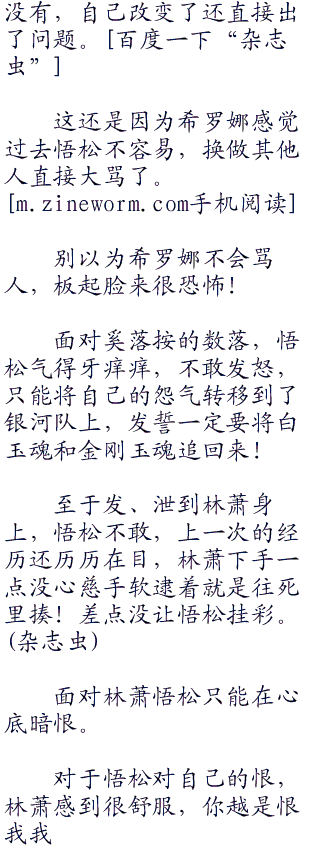 没有，自己改变了还直接出
了问题。[百度一下“杂志
虫”]
这还是因为希罗娜感觉
过去悟松不容易，换做其他
人直接大骂了。
[m.zineworm.com手机阅读]
别以为希罗娜不会骂
人，板起脸来很恐怖！
面对奚落按的数落，悟
松气得牙痒痒，不敢发怒，
只能将自己的怨气转移到了
银河队上，发誓一定要将白
玉魂和金刚玉魂追回来！
至于发、泄到林萧身
上，悟松不敢，上一次的经
历还历历在目，林萧下手一
点没心慈手软逮着就是往死
里揍！差点没让悟松挂彩。
(杂志虫)
面对林萧悟松只能在心
底暗恨。
对于悟松对自己的恨，
林萧感到很舒服，你越是恨
我我